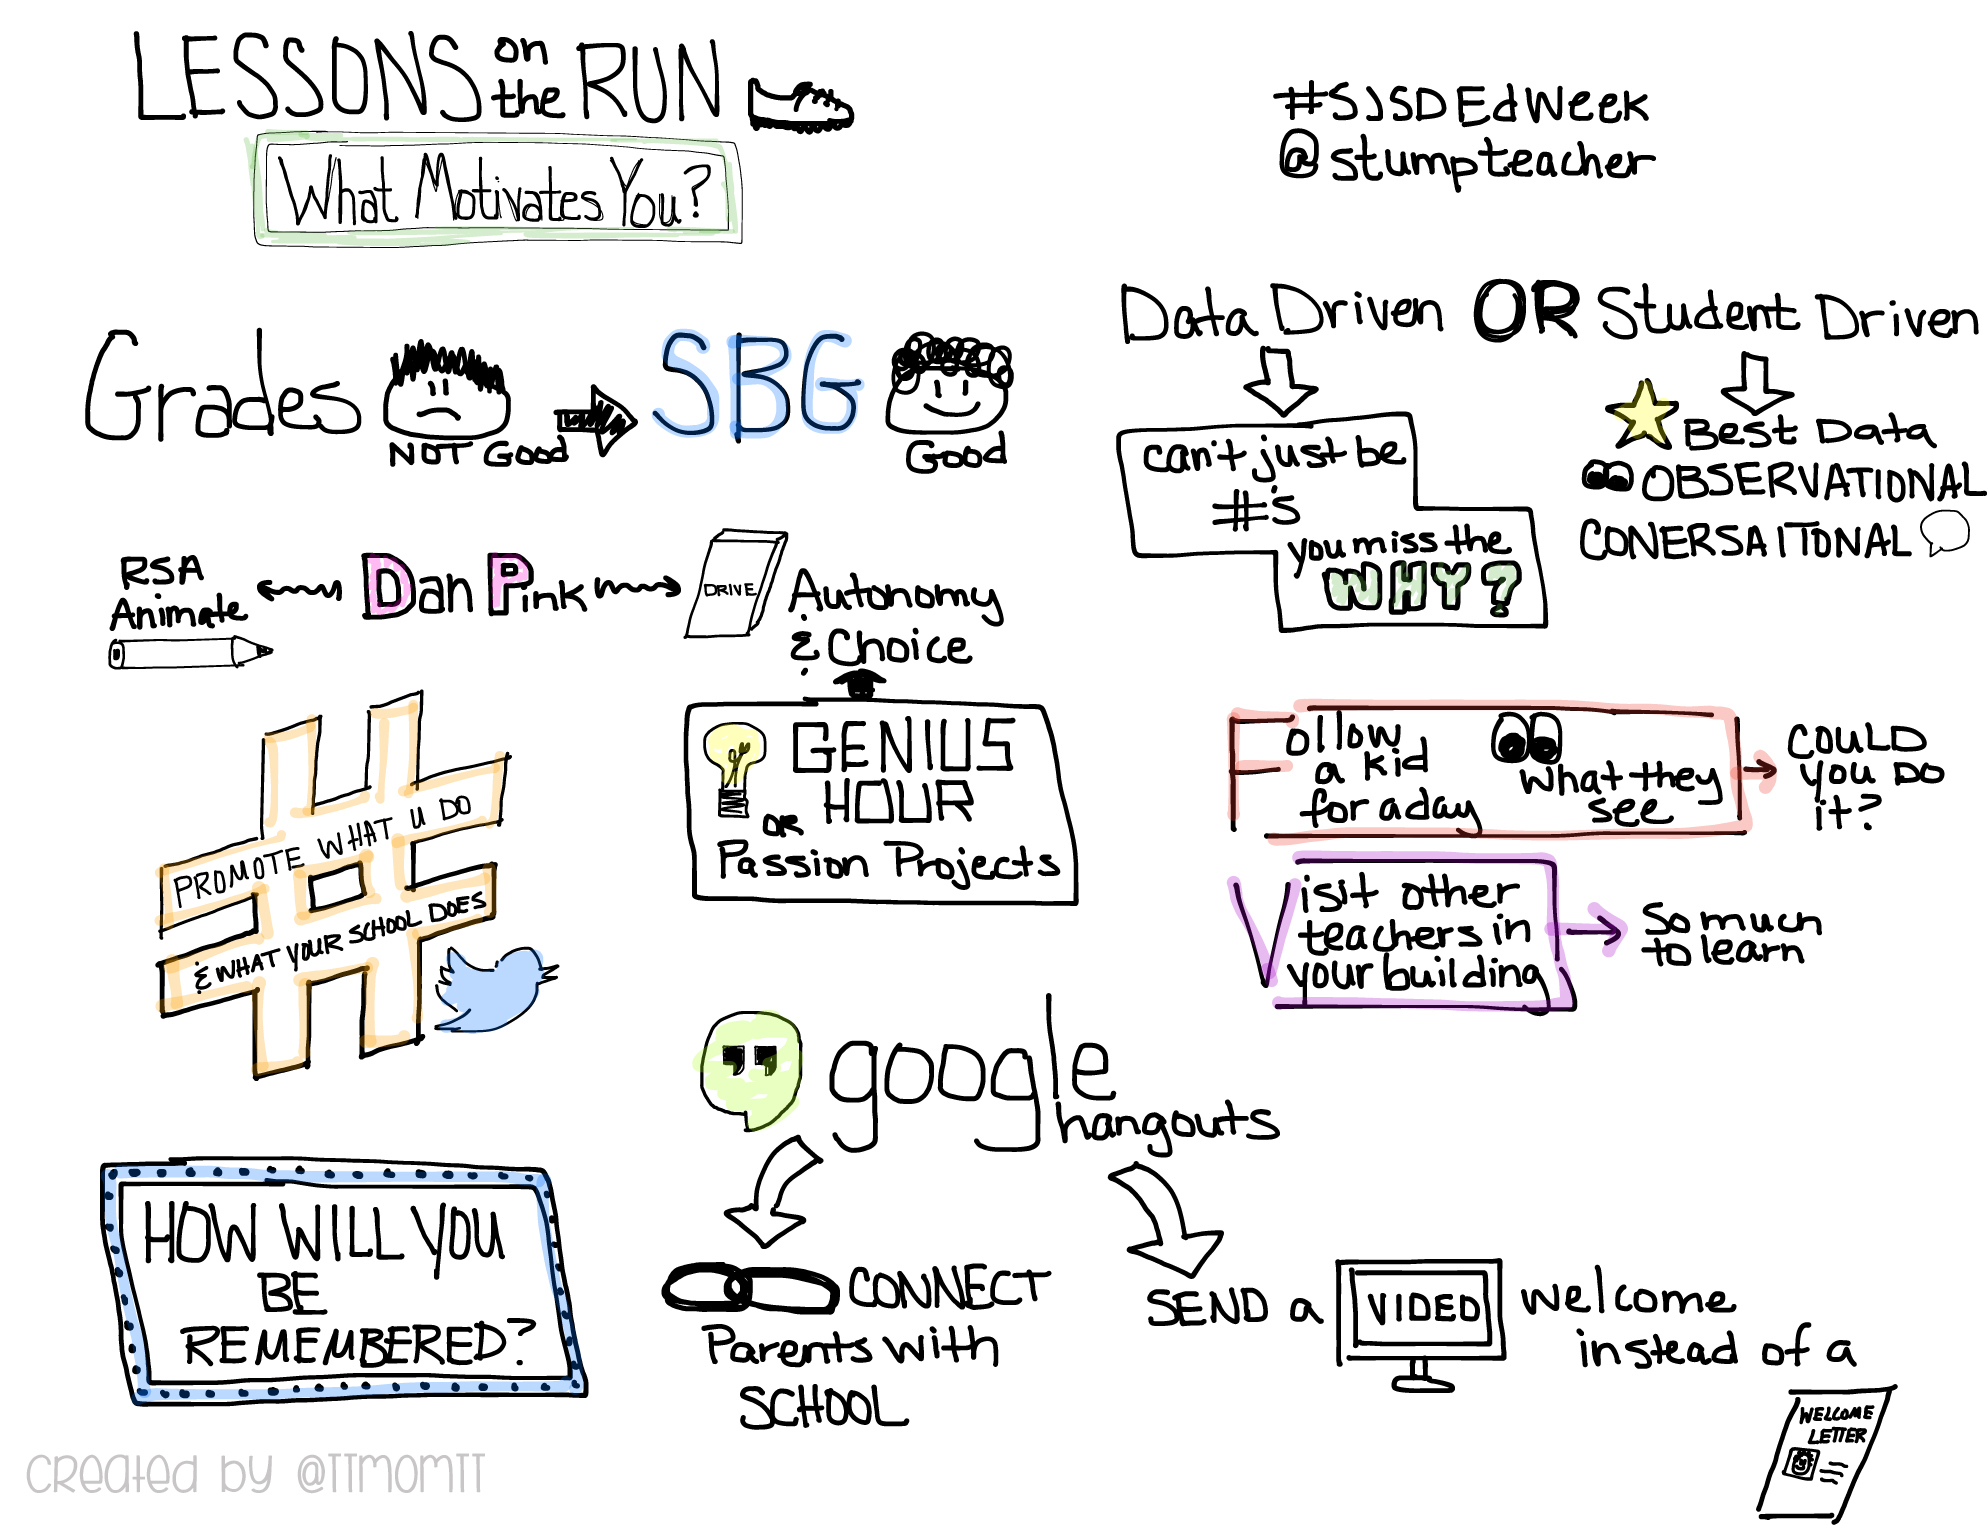 LESSONS on the RUN
What Motivates You?
#SJSDEdWeek
@stumpteacher
Grades
NOT Good
SBG
Good
Data Driven OR Student Driven
can't just be
#'s
you miss the
WHY?
Best Data
OBSERVATIONAL
CONERSAITONAL
RSA
Animate
Dan Pink
DRIVE
Autonomy
& Choice
GENIUS
HOUR
OR
Passion Projects
PROMOTE WHAT U DO
& WHAT YOUR SCHOOL DOES
Follow
a kid
for a day
what they
see
COULD
you DO
it?
Visit other
teachers in
your building
So much
to learn
google
hangouts
CONNECT
Parents with
SCHOOL
SEND a VIDEO welcome
instead of a
WELCOME
LETTER
HOW WILL YOU
BE
REMEMBERED?
created by @TTMOMTT